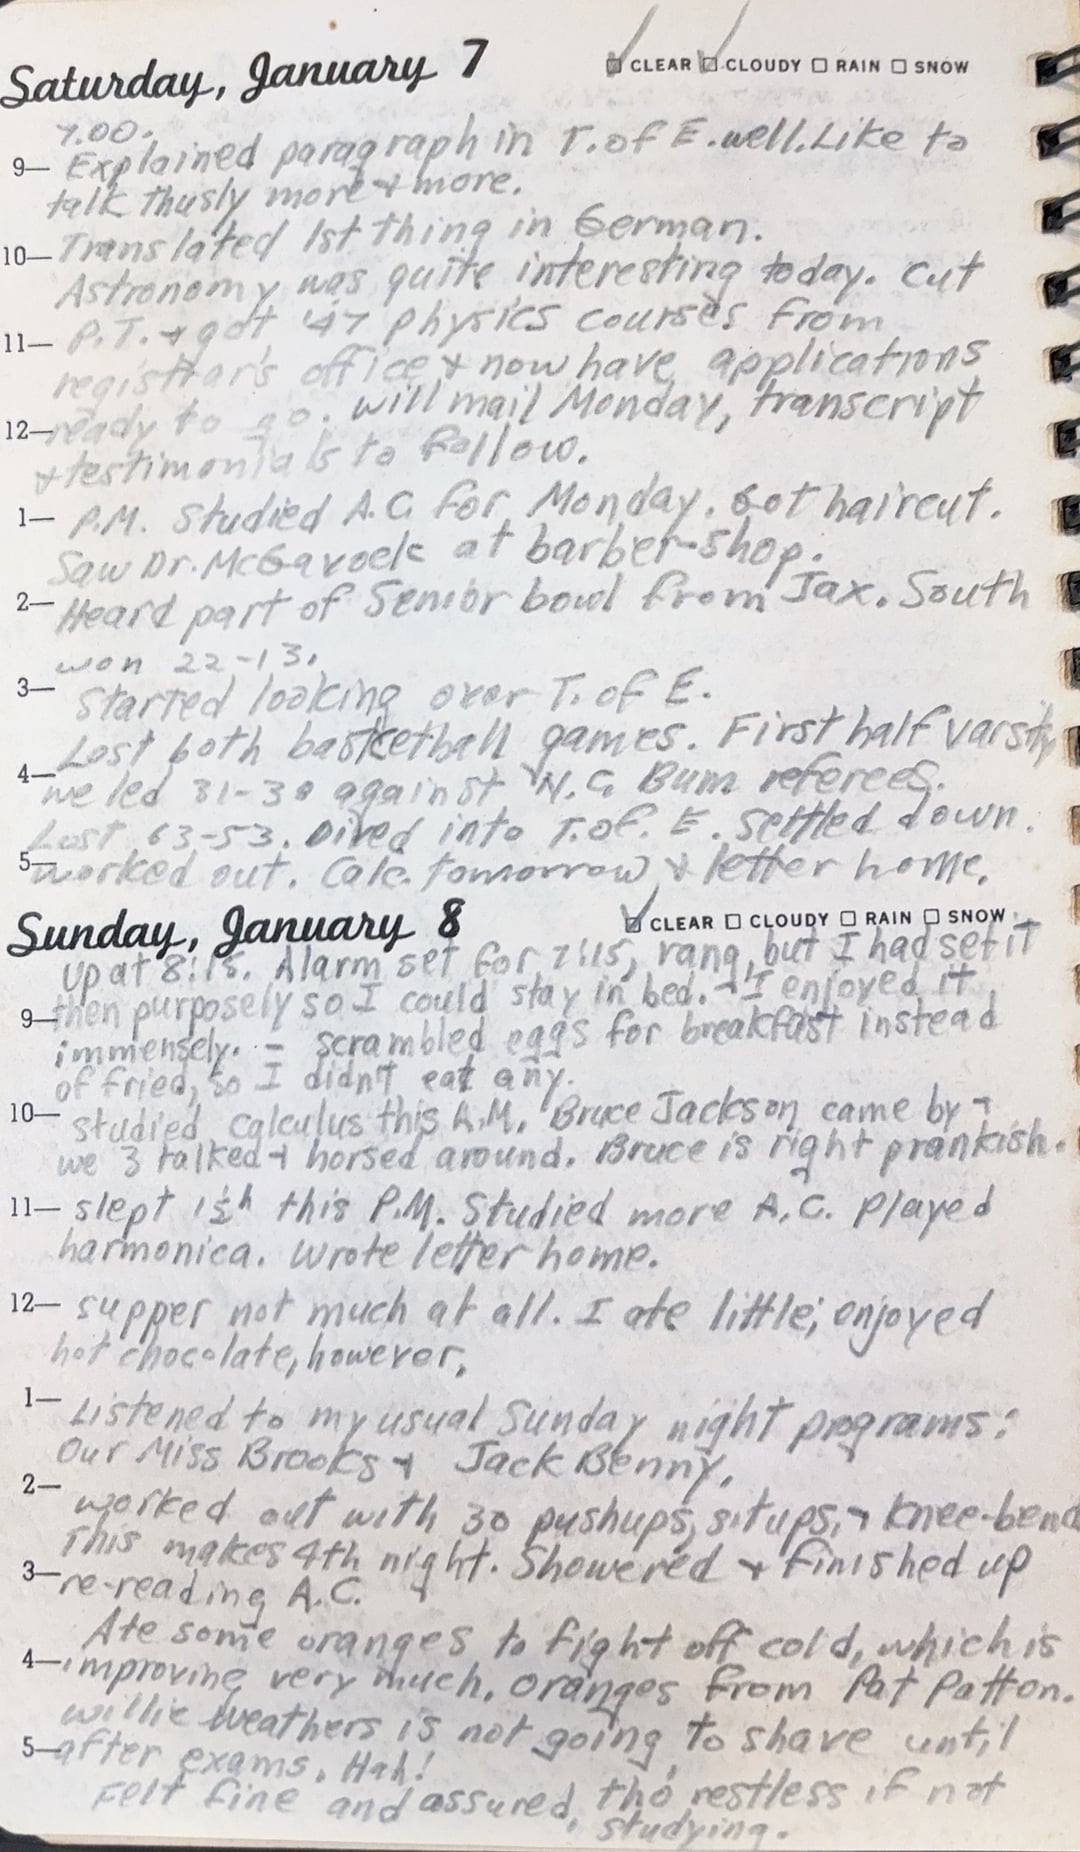 Saturday, January 7 CLEAR CLOUDY RAIN SNOW
7.00.
9— Explained paragraph in T. of E. well. Like to
talk thusly more + more.
10— Translated 1st thing in German.
Astronomy was quite interesting today. Cut
P.T. + got '47 physics courses from
11—
registrar's office + now have applications
12— ready to go. Will mail Monday, transcript
+ testimonials to follow.
1— P.M. Studied A.C. for Monday. Got haircut.
Saw Dr. McGavock at barber-shop.
2— Heard part of Senior bowl from Jax. South
won 22-13.
3— Started looking over T. of E.
Lost both basketball games. First half varsity
4— we led 31-30 against N.G. Bum referees.
Lost 63-53. Dived into T. of. E. Settled down.
5— worked out. Calc. tomorrow + letter home.
Sunday, January 8 CLEAR CLOUDY RAIN SNOW
Up at 8:15. Alarm set for 7:15, rang, but I had set it
9— then purposely so I could stay in bed. + I enjoyed it
immensely. - scrambled eggs for breakfast instead
of fried, so I didn't eat any.
10— studied calculus this A.M. Bruce Jackson came by +
we 3 talked + horsed around. Bruce is right prankish.
11— slept 1½h this P.M. Studied more A.C. Played
harmonica. Wrote letter home.
12— supper not much at all. I ate little; enjoyed
hot chocolate, however.
1— Listened to my usual Sunday night programs:
Our Miss Brooks + Jack Benny.
2— worked out with 30 pushups, situps, + knee-bend
This makes 4th night. Showered + finished up
3— re-reading A.C.
Ate some oranges to fight off cold, which is
4— improving very much. Oranges from Pat Patton.
Willie Weathers is not going to shave until
5— after exams. Hah!
Felt fine and assured, tho' restless if not
studying.